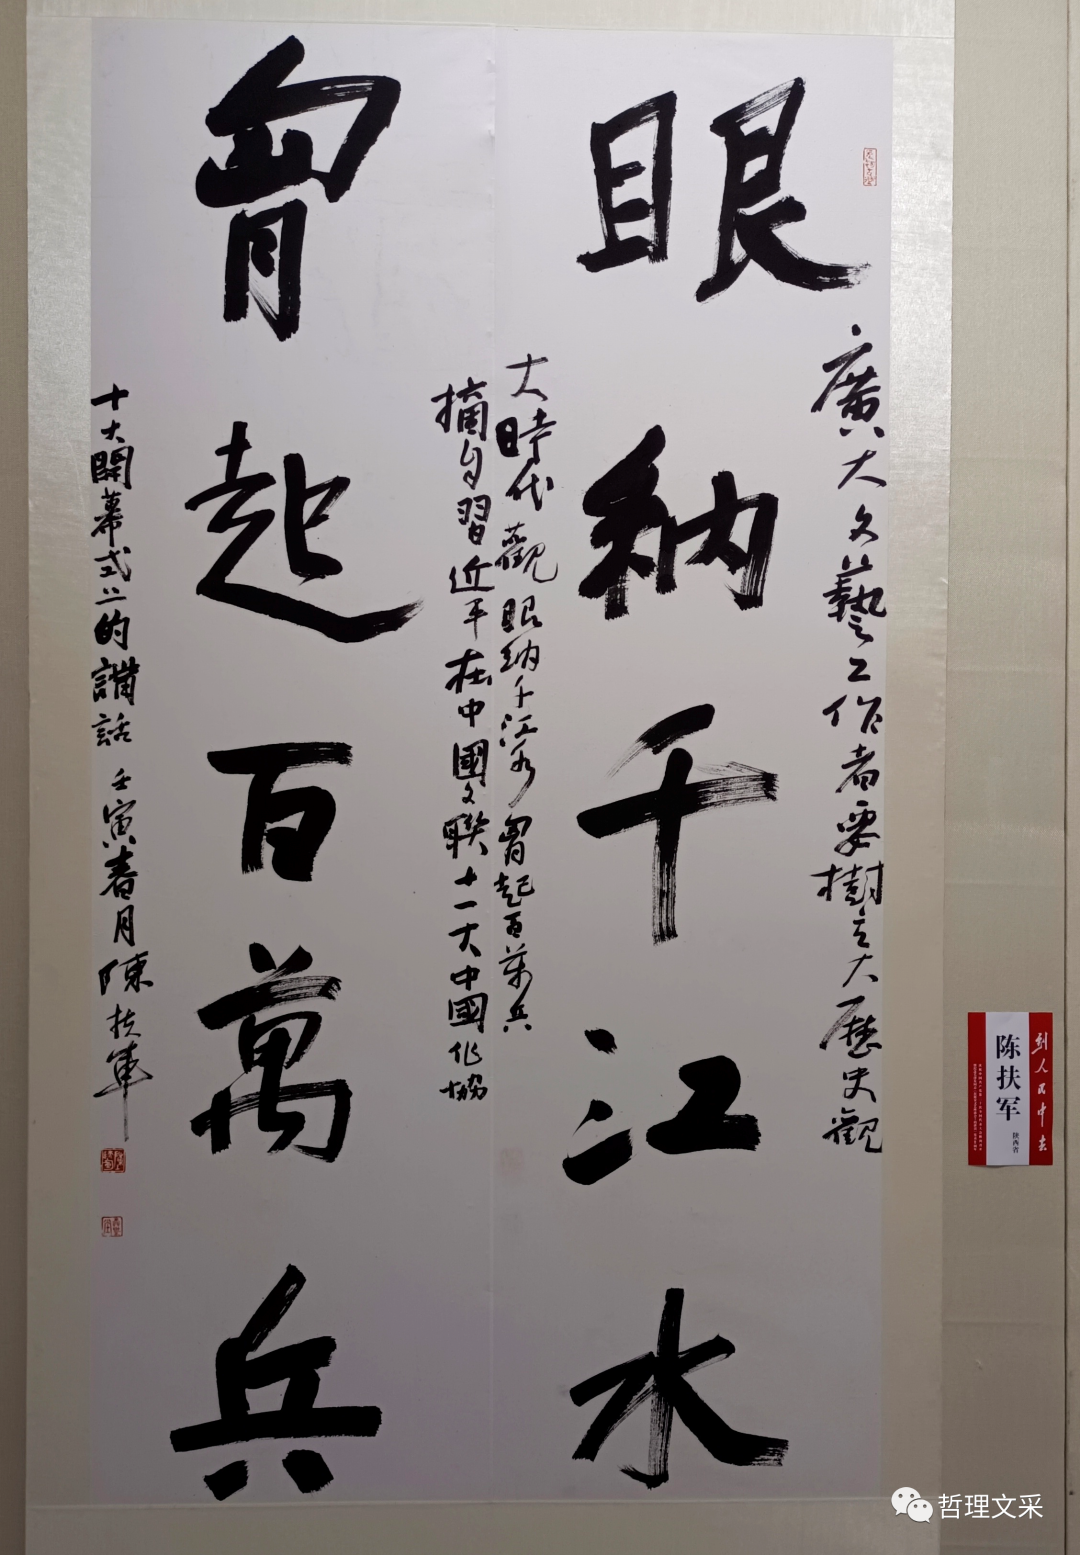 眼納千江水
胷起百萬兵
廣大文藝工作者要樹立大歷史觀
大時代觀眼納千江水胷起百萬兵
摘自習近平在中國文聯十一大中國作協
十大開幕式上的講話 壬寅春月陳扶軍
到人民中去
陈扶军
陕西省
哲理文采